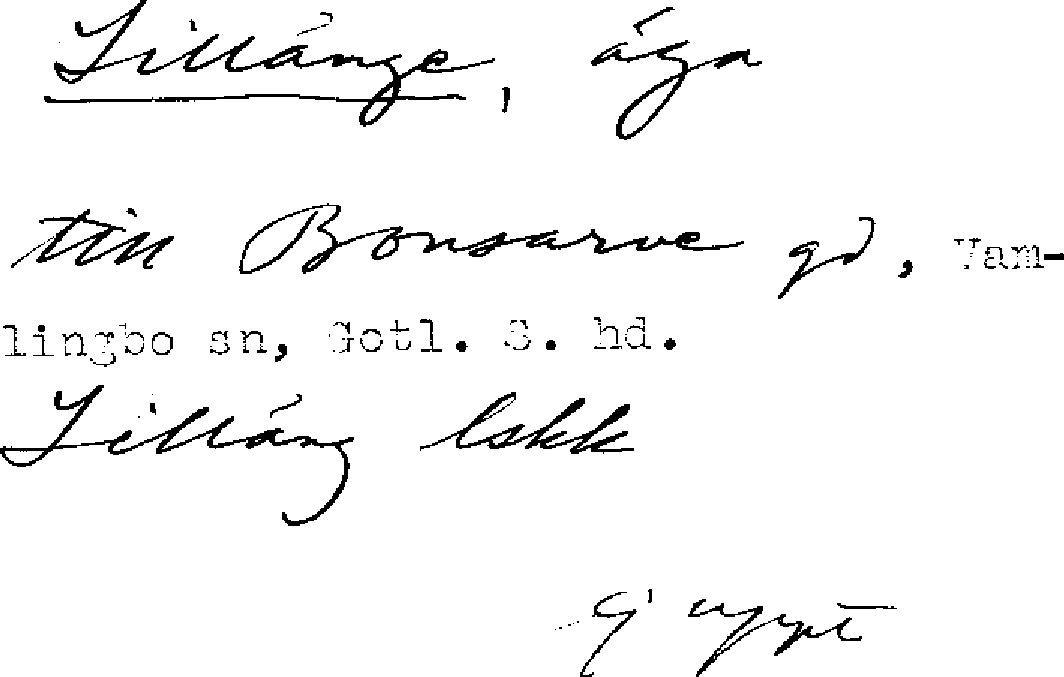 Lillänge, äga
till Bonsarve gd, Vam-
lingbo sn, Gotl. S. hd.
Lilläng lskk
Ej uppt